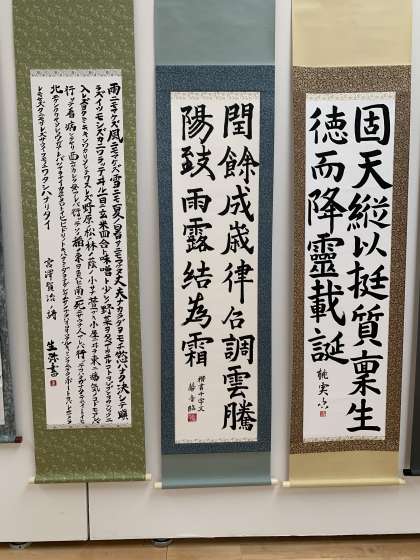 固天縱以挺質稟生
徳而降靈載誕
閏餘成歳律呂調雲騰
陽致雨露結為霜
楷書千字文
雨ニモマケズ風ニモマケズ雪ニモ夏ノ暑サニモマケヌ丈夫ナカラダヲモチ慾ハナク決シテ瞋
ラズイツモシズカニワラッテヰル一日ニ玄米四合ト味噌ト少シノ野菜ヲタベアラユルコトヲジブンヲカンジョウニ
入レズニヨクミキキシワカリソシテワスレズ野原ノ松ノ林ノ蔭ノ小サナ萱ブキノ小屋ニヰテ東ニ病気ノコドモアレバ
行ッテ看病シテヤリ西ニツカレタ母アレバ行ッテソノ稲ノ束ヲ負ヒ南ニ死ニサウナ人アレバ行ッテ
モセズクニモサレズサウイフモノニワタシハナリタイ
宮澤賢治ノ詩